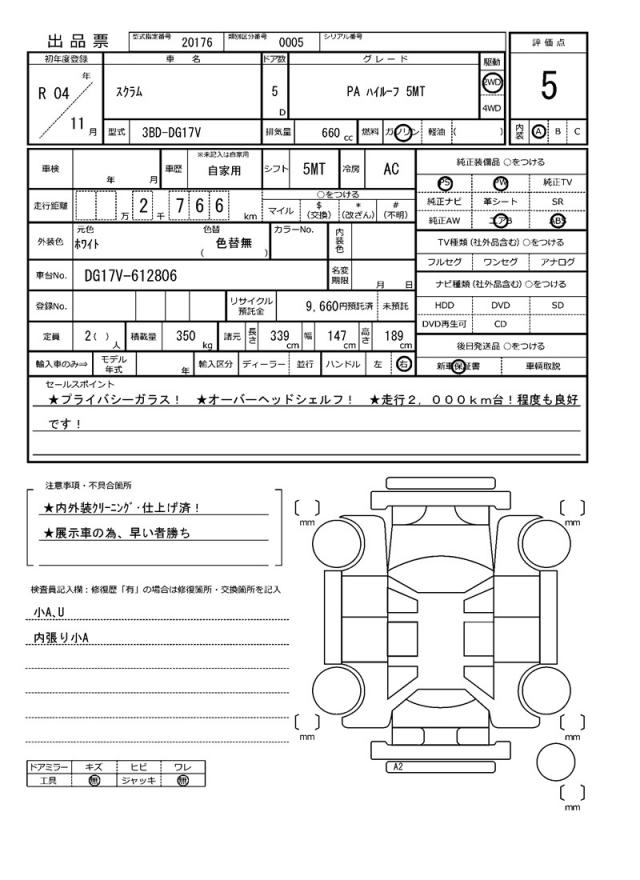 出品票 型式指定番号 20176 類別区分番号 0005 シリアル番号
評価点
5
内装 A B C
初年度登録 車名 ドア数 グレード 駆動
R 04 年 11 月 スクラム 5 D PA ハイルーフ 5MT 2WD
4WD
型式 3BD-DG17V 排気量 660 cc 燃料 ガソリン 軽油 ( )
車検 年 月 車歴 ※未記入は自家用 自家用 シフト 5MT 冷房 AC
走行距離 万 2 千 7 6 6 km ○をつける
マイル $(交換) *(改ざん) #(不明)
外装色 元色 ホワイト 色替 ( 色替無 ) カラーNo. 内装色
車台No. DG17V-612806 名変期限 月 日
登録No. リサイクル預託金 9,660円預託済 未預託
定員 2( ) 人 積載量 350 kg 諸元 長さ 339 cm 幅 147 cm 高さ 189 cm
輸入車のみ⇒ モデル年式 年 輸入区分 ディーラー 並行 ハンドル 左 右
純正装備品 ○をつける
PS PW 純正TV
純正ナビ 革シート SR
純正AW エアB ABS
TV種類(社外品含む)○をつける
フルセグ ワンセグ アナログ
ナビ種類(社外品含む)○をつける
HDD DVD SD
DVD再生可 CD
後日発送品 ○をつける
新車保証書 車輌取説
セールスポイント
★プライバシーガラス! ★オーバーヘッドシェルフ! ★走行2,000km台!程度も良好
です!
注意事項・不具合箇所
★内外装クリーニング・仕上げ済!
★展示車の為、早い者勝ち
検査員記入欄:修復歴「有」の場合は修復箇所・交換箇所を記入
小A、U
内張り小A
ドアミラー キズ ヒビ ワレ
工具 無 ジャッキ 無
[ ] mm
[ ] mm
[ ] mm
[ ] mm
A2
[ ] mm